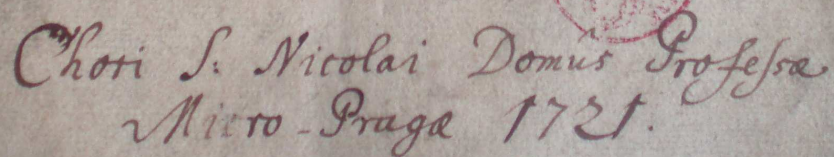 Chori S: Nicolai Domûs Professæ
Micro-Pragæ 1721.